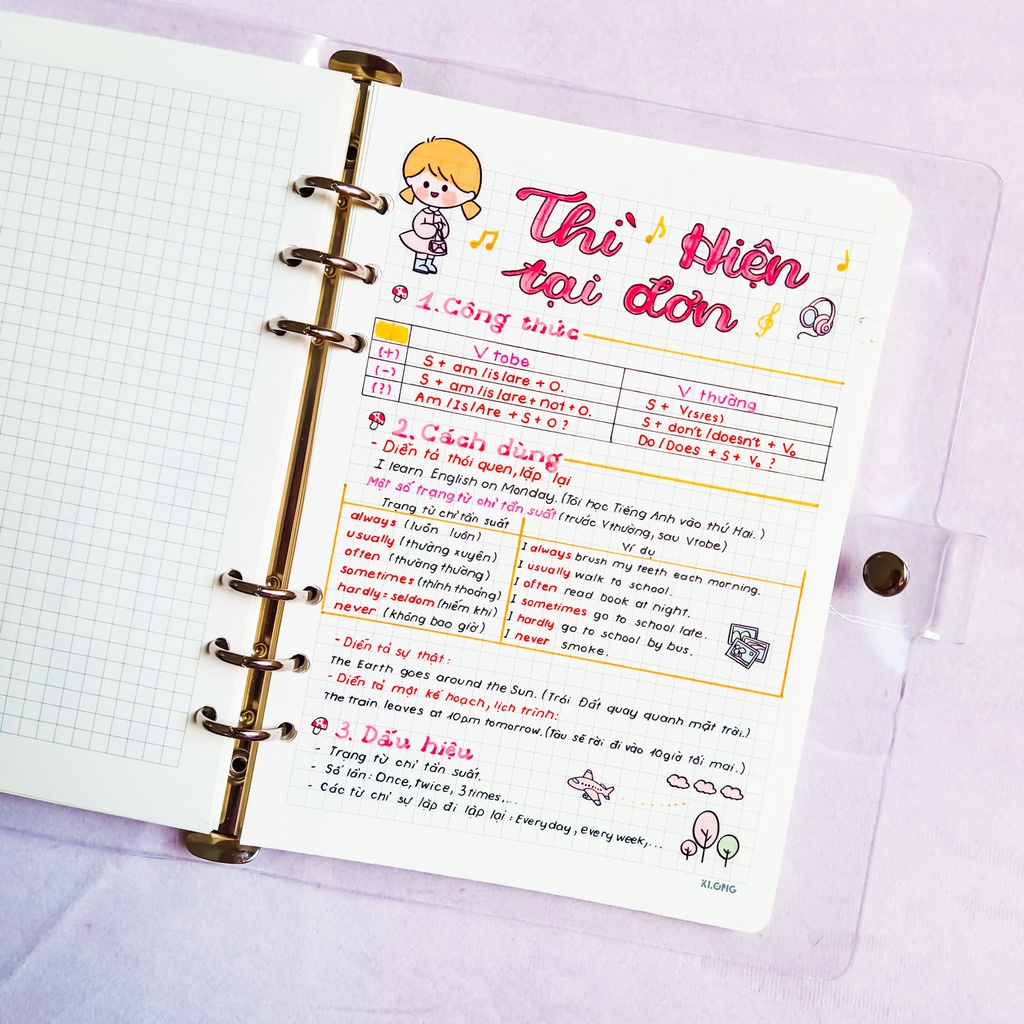 Thì Hiện
tại đơn
1. Công thức
V tobe V thường
(+) S + am/is/are + O. S + V(s/es)
(-) S + am/is/are + not + O. S + don't/doesn't + V₀
(?) Am/Is/Are + S + O? Do/Does + S + V₀ ?
2. Cách dùng
- Diễn tả thói quen, lặp lại
I learn English on Monday. (Tôi học Tiếng Anh vào thứ Hai.)
Một số trạng từ chỉ tần suất (trước Vthường, sau Vtobe)
Trạng từ chỉ tần suất Ví dụ
always (luôn luôn) I always brush my teeth each morning.
usually (thường xuyên) I usually walk to school.
often (thường thường) I often read book at night.
sometimes (thỉnh thoảng) I sometimes go to school late.
hardly = seldom (hiếm khi) I hardly go to school by bus.
never (không bao giờ) I never smoke.
- Diễn tả sự thật:
The Earth goes around the Sun. (Trái Đất quay quanh mặt trời.)
- Diễn tả một kế hoạch, lịch trình:
The train leaves at 10pm tomorrow. (Tàu sẽ rời đi vào 10giờ tối mai.)
3. Dấu hiệu
- Trạng từ chỉ tần suất.
- Số lần: Once, twice, 3 times,...
- Các từ chỉ sự lặp đi lặp lại: Everyday, every week,...
KLONG